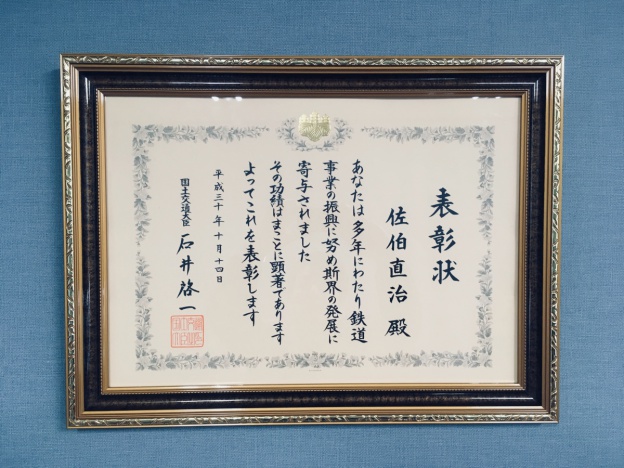 表彰状
佐伯直治 殿
あなたは多年にわたり鉄道
事業の振興に努め斯界の発展に
寄与されました
その功績はまことに顕著であります
よってこれを表彰します
平成三十年十月十四日
国土交通大臣 石井啓一